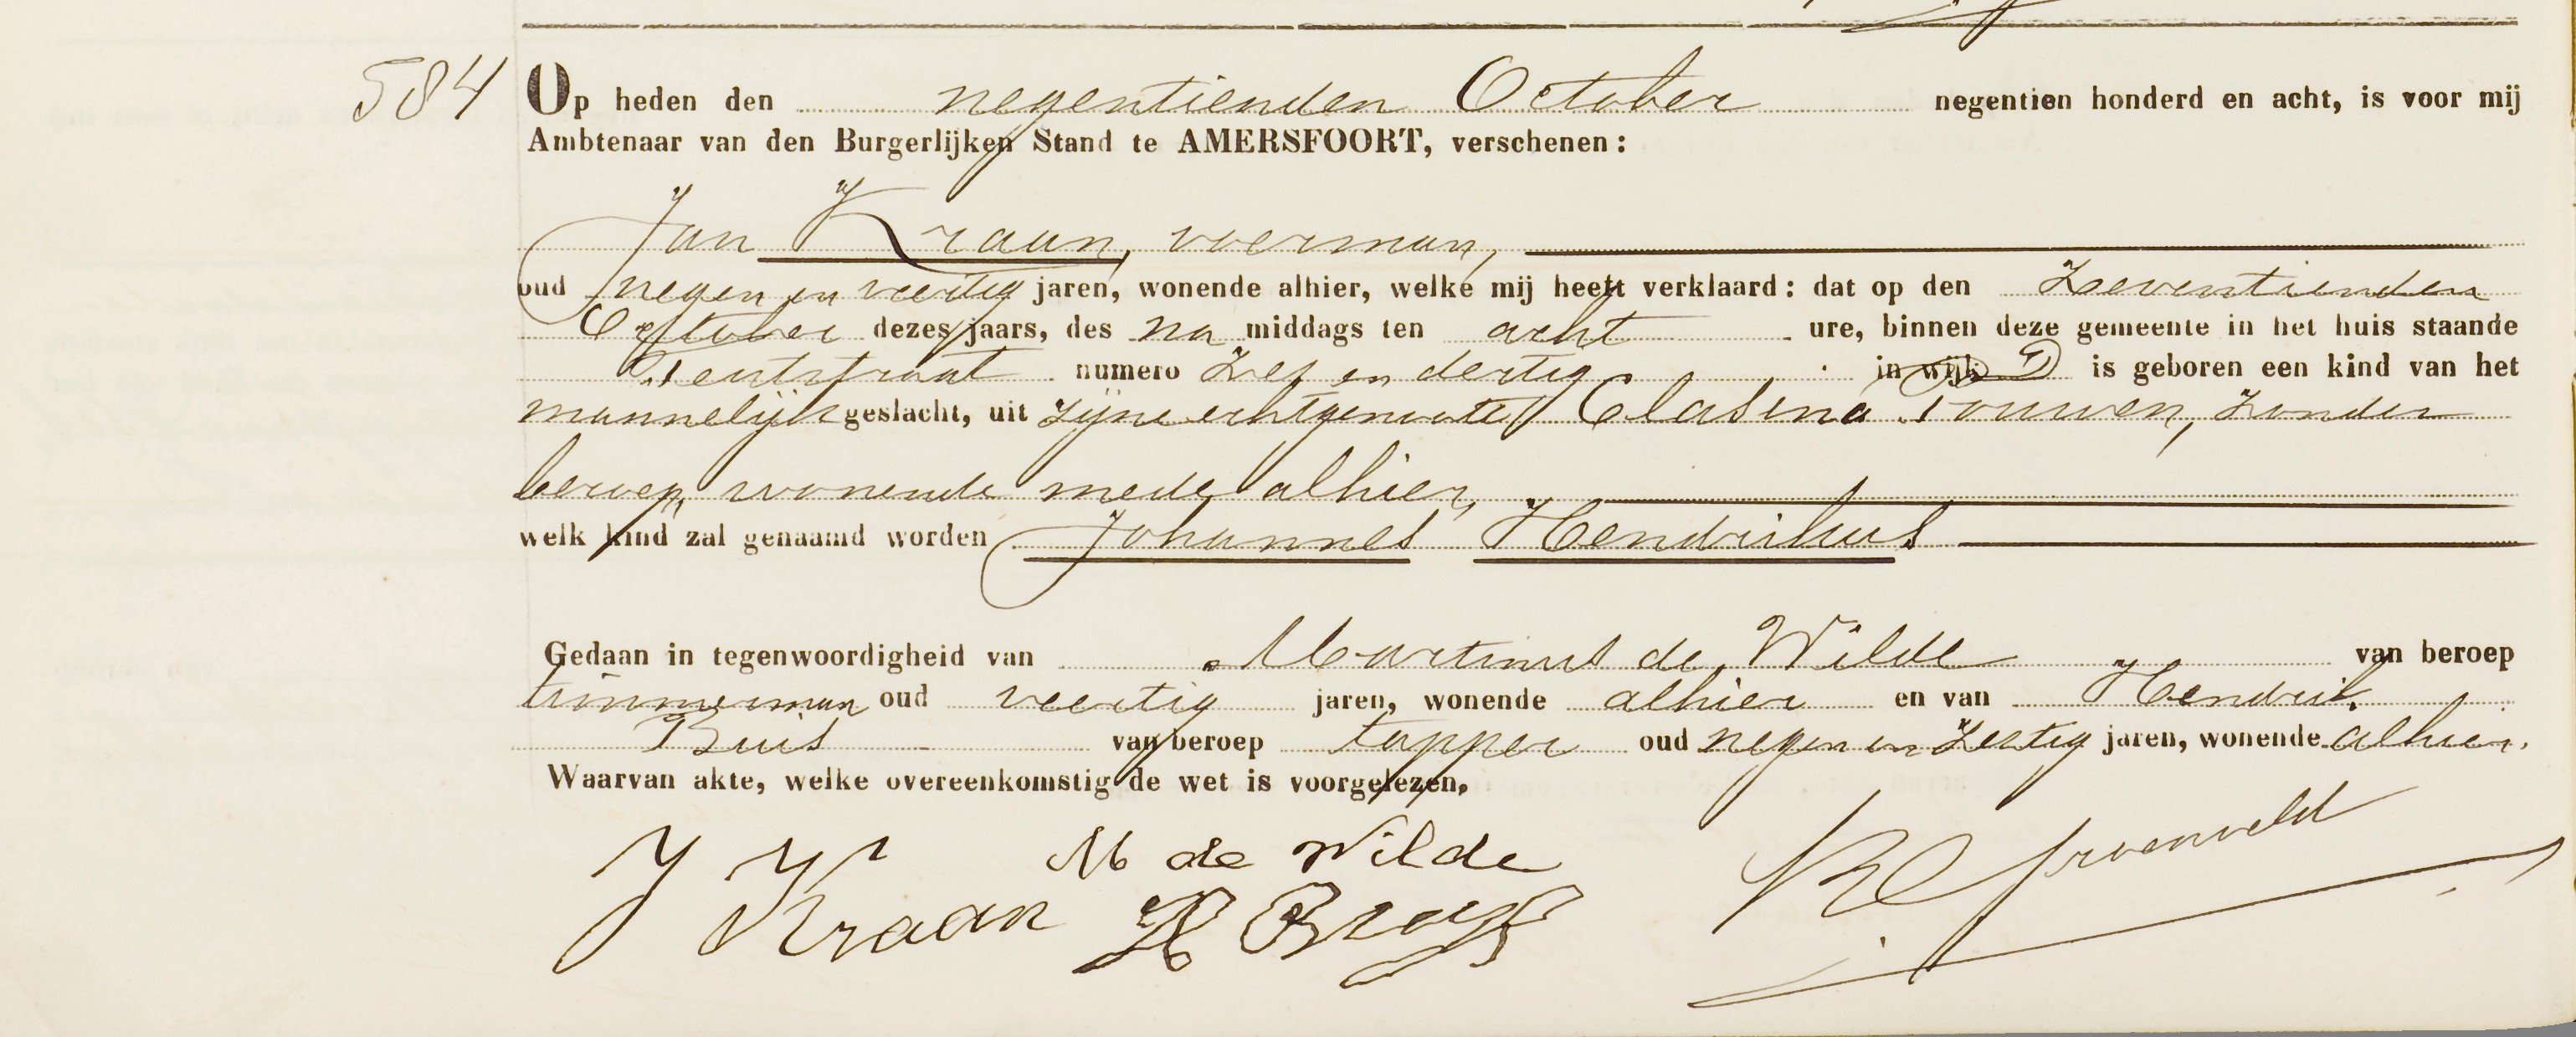 584
Op heden den negentienden October negentien honderd en acht, is voor mij
Ambtenaar van den Burgerlijken Stand te AMERSFOORT, verschenen:
Jan Kraan, voerman,
oud negen en veertig jaren, wonende alhier, welke mij heeft verklaard: dat op den Zeventienden
October dezes jaars, des na middags ten acht ure, binnen deze gemeente in het huis staande
Teutstraat numero Zes en dertig in wijk D is geboren een kind van het
mannelijk geslacht, uit zijne echtgenoote Clasina Touwen, zonder
beroep, wonende mede alhier,
welk kind zal genaamd worden Johannes Hendrikus
Gedaan in tegenwoordigheid van Martinus de Wilde van beroep
timmerman oud veertig jaren, wonende alhier en van Hendrik
Buis van beroep tapper oud negen en Zestig jaren, wonende alhier.
Waarvan akte, welke overeenkomstig de wet is voorgelezen.
J Kraan M de Wilde
H Buys